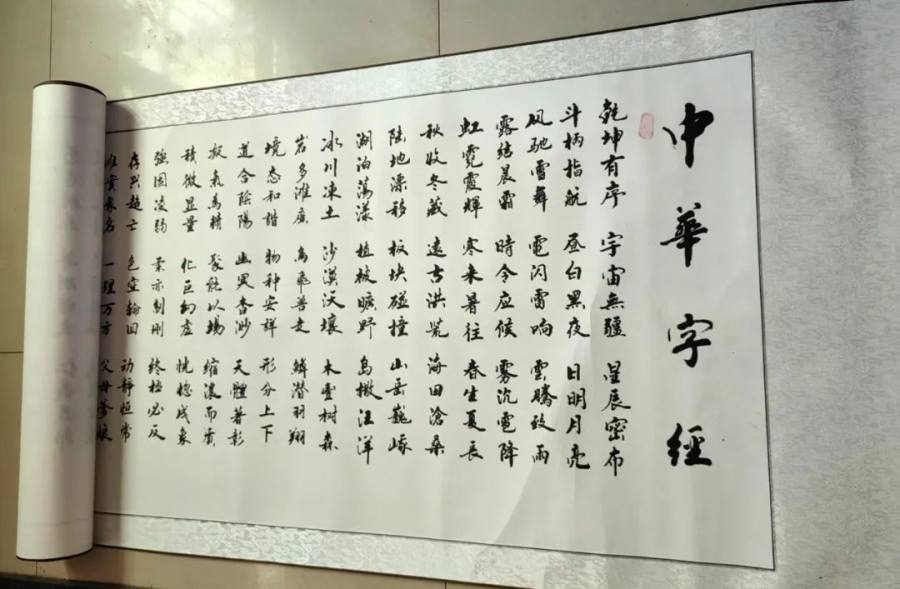 中華字經
乾坤有序 宇宙無疆 星辰密布
斗柄指航 昼白黑夜 日明月亮
风驰雪舞 電闪雷响 雲騰致雨
露结晨霜 時令应候 雾沉電降
虹霓霞輝 寒来暑往 春生夏長
秋收冬藏 遠古洪荒 海田滄桑
陆地漂移 板块碰撞 山岳巍峨
湖泊荡漾 植被曠野 岛礅汪洋
冰川凍土 沙漠沃壤 木豐树森
岩多滩廣 鸟飛兽走 鳞潜羽翔
境态和諧 物种安祥 形分上下
道合陰陽 幽冥杳渺 天體著彰
凝氣為精 聚能以場 缩濃而质
積微显量 化巨幻虚 恍惚成象
強固凌弱 柔亦制刚 終极必反
存兴趋亡 色空輪回 动静恒常
唯實表名 一理万方 父母爹娘